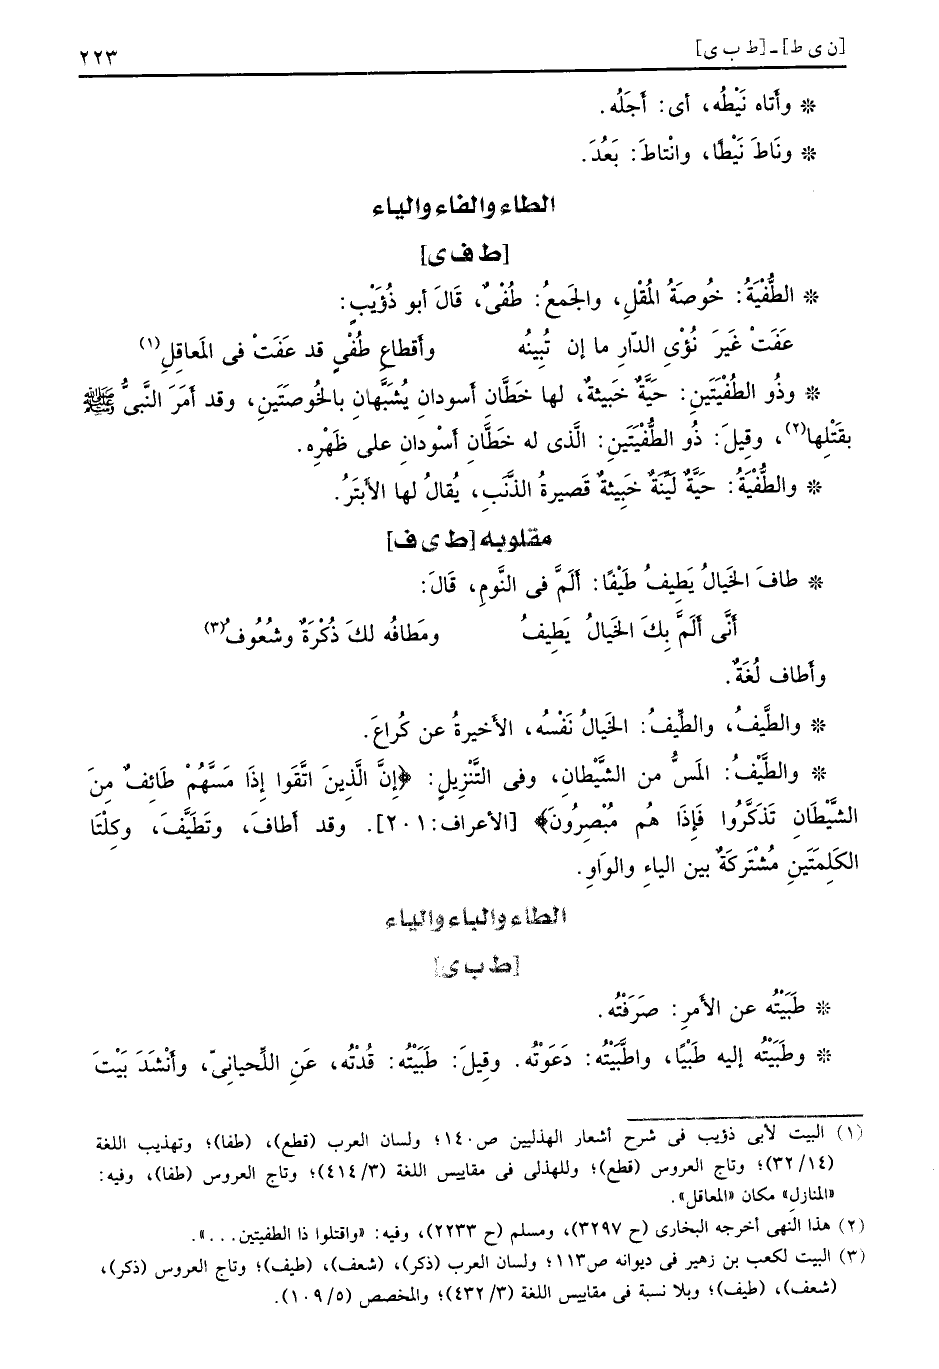 [ن ى ط] - [ط ب ى] ٢٢٣
❊ وأتاه نَيْطُه، أى: أجَلُه.
❊ ونَاطَ نَيْطًا، وانْتاطَ: بَعُدَ.
الطاء والفاء والياء
[ط ف ى]
❊ الطُّفْيَةُ: خُوصَةُ المُقْلِ، والجَمعُ: طُفْىٌ، قَالَ أبو ذُؤَيْبٍ:
عَفَتْ غَيرَ نُؤْىِ الدّارِ ما إن تُبِينُه وأقطاعِ طُفْىٍ قد عَفَتْ فى المَعاقلِ(١)
❊ وذُو الطُفْيَتَينِ: حَيَّةٌ خَبيثةٌ، لها خَطَّان أسودان يُشَبَّهان بالخُوصتَينِ، وقد أمَرَ النَّبىُّ ﷺ
بقَتْلِها(٢)، وقيلَ: ذُو الطُّفْيَتَينِ: الَّذى له خَطَّانِ أسْودانِ على ظَهْرِه.
❊ والطُّفْيَةُ: حَيَّةٌ لَيِّنَةٌ خَبِيثةٌ قَصيرةُ الذَّنَب، يُقالُ لها الأبتَرُ.
مقلوبه [ط ى ف]
❊ طافَ الخَيالُ يَطِيفُ طَيْفًا: ألَمَّ فى النَّومِ، قَالَ:
أنَّى ألَمَّ بِكَ الخَيالُ يَطِيفُ ومَطافُه لكَ ذُكْرَةٌ وشُعُوفُ(٣)
وأطاف لُغَةٌ.
❊ والطَّيفُ، والطِّيفُ: الخَيالُ نَفْسُه، الأخيرةُ عن كُراعَ.
❊ والطَّيْفُ: المَسُّ من الشَّيْطانِ، وفى التَّنْزِيلِ: ﴿إِنَّ الَّذينَ اتَّقَوا إِذَا مَسَّهُمْ طَائفٌ مِنَ
الشَّيْطَانِ تَذَكَّرُوا فَإِذَا هُم مُبْصِرُونَ﴾ [الأعراف: ٢٠١]. وقد أطافَ، وتَطَيَّفَ، وكِلْتَا
الكَلِمَتَينِ مُشْتَركَةٌ بين الياءِ والوَاوِ.
الطاء والباء والياء
[ط ب ى]
❊ طَبَيْتُه عن الأمرِ: صَرَفْتُه.
❊ وطَبَيْتُه إليه طَبْيًا، واطَّبَيْتُه: دَعَوْتُه. وقيلَ: طَبَيْتُه: قُدْتُه، عَنِ اللِّحيانىّ، وأنْشَدَ بَيْتَ
(١) البيت لأبى ذؤيب فى شرح أشعار الهذليين ص١٤٠؛ ولسان العرب (قطع)، (طفا)؛ وتهذيب اللغة
(٣٢/١٤)؛ وتاج العروس (قطع)؛ وللهذلى فى مقاييس اللغة (٤١٤/٣)؛ وتاج العروس (طفا)، وفيه:
«المنازل» مكان «المعاقل».
(٢) هذا النهى أخرجه البخارى (ح ٣٢٩٧)، ومسلم (ح ٢٢٣٣)، وفيه: «واقتلوا ذا الطفيتين...».
(٣) البيت لكعب بن زهير فى ديوانه ص١١٣؛ ولسان العرب (ذكر)، (شعف)، (طيف)؛ وتاج العروس (ذكر)،
(شعف)، (طيف)؛ وبلا نسبة فى مقاييس اللغة (٤٣٢/٣)؛ والمخصص (١٠٩/٥).